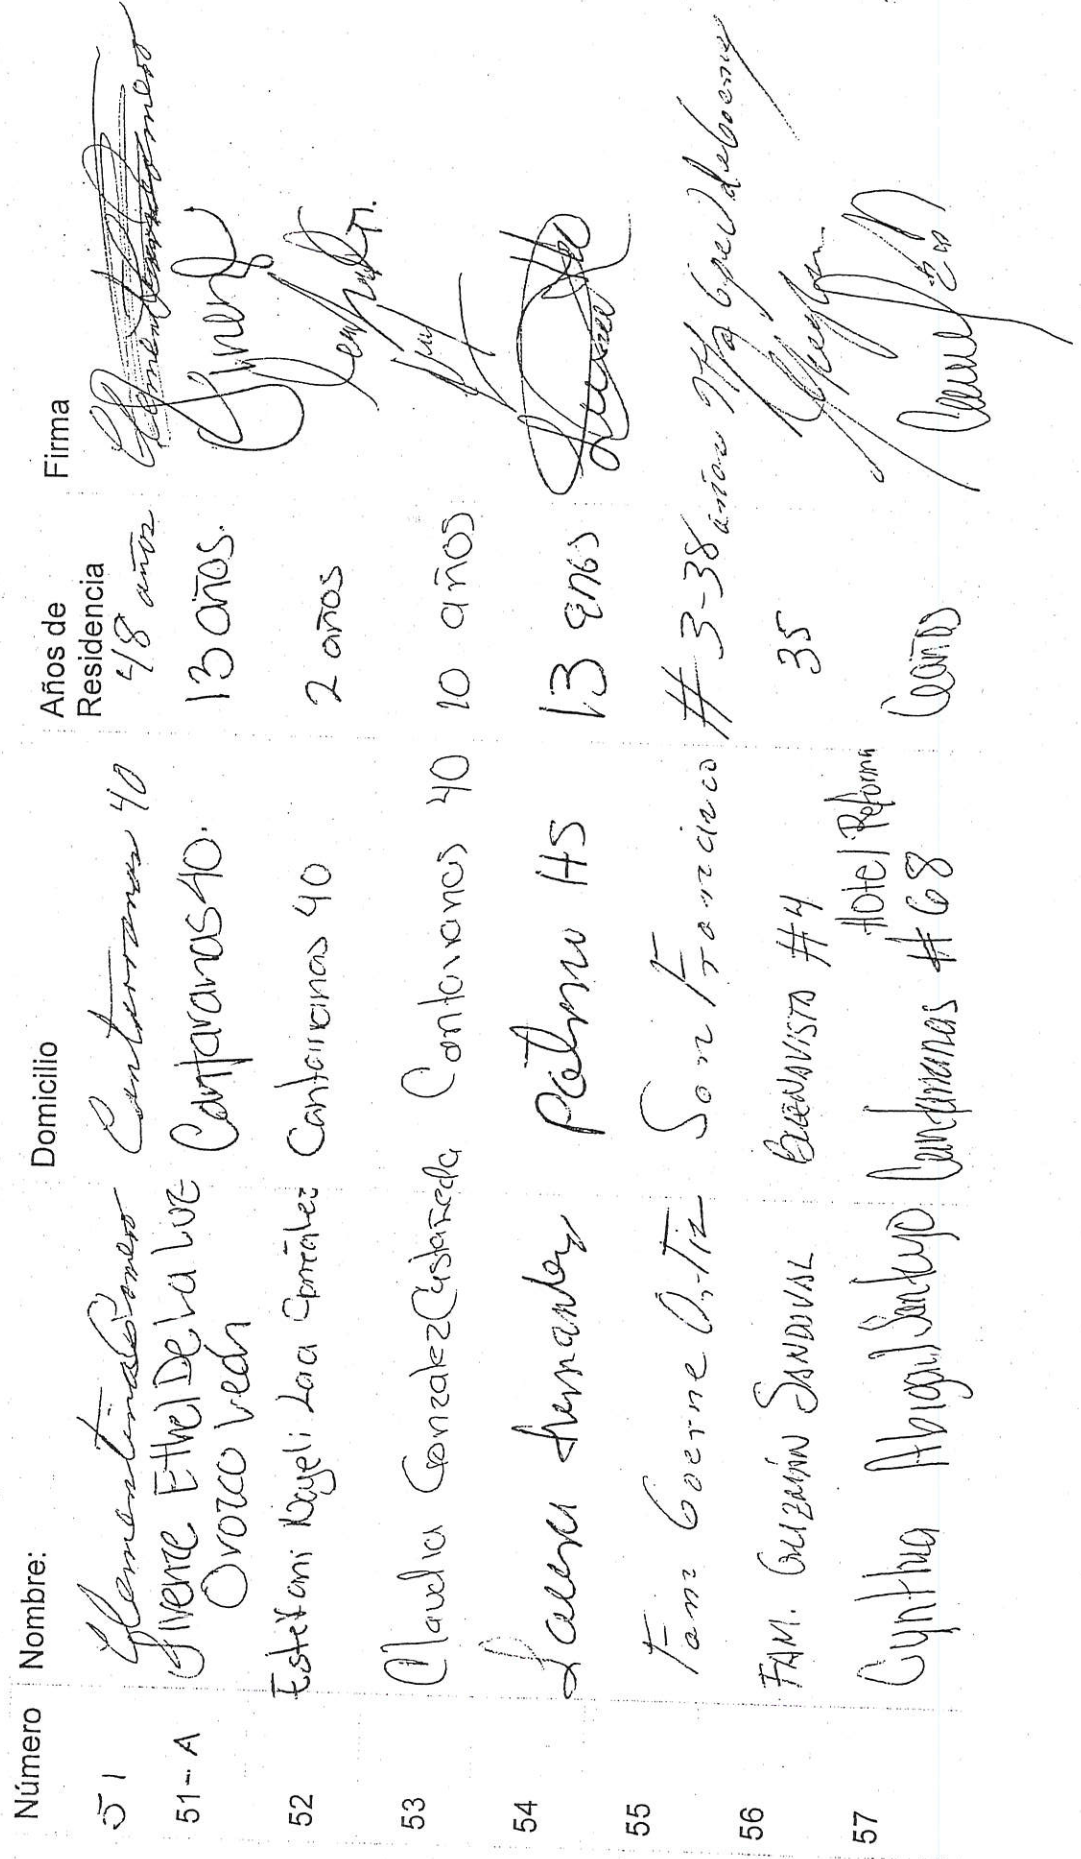 Número Nombre: Domicilio Años de Residencia Firma
51 Clementina Gomero Cantarranas 40 48 años
51-A Givene Ethel De La Luz Orozco León Cantaranas 40. 13 años.
52 Estefani Nayeli Lara González Cantarranas 40 2 años
53 Claudia González Castañeda Cantarranas 40 10 años
54 Laura hernandez Palma HS 13 años
55 Fam Goerne Ortiz San Francisco #3-38 años
56 FAM. GUZMÁN SANDOVAL BUENAVISTA #4 35
57 Cynthia Abigail Santuyo Cantarranas #68 Hotel Reforma años